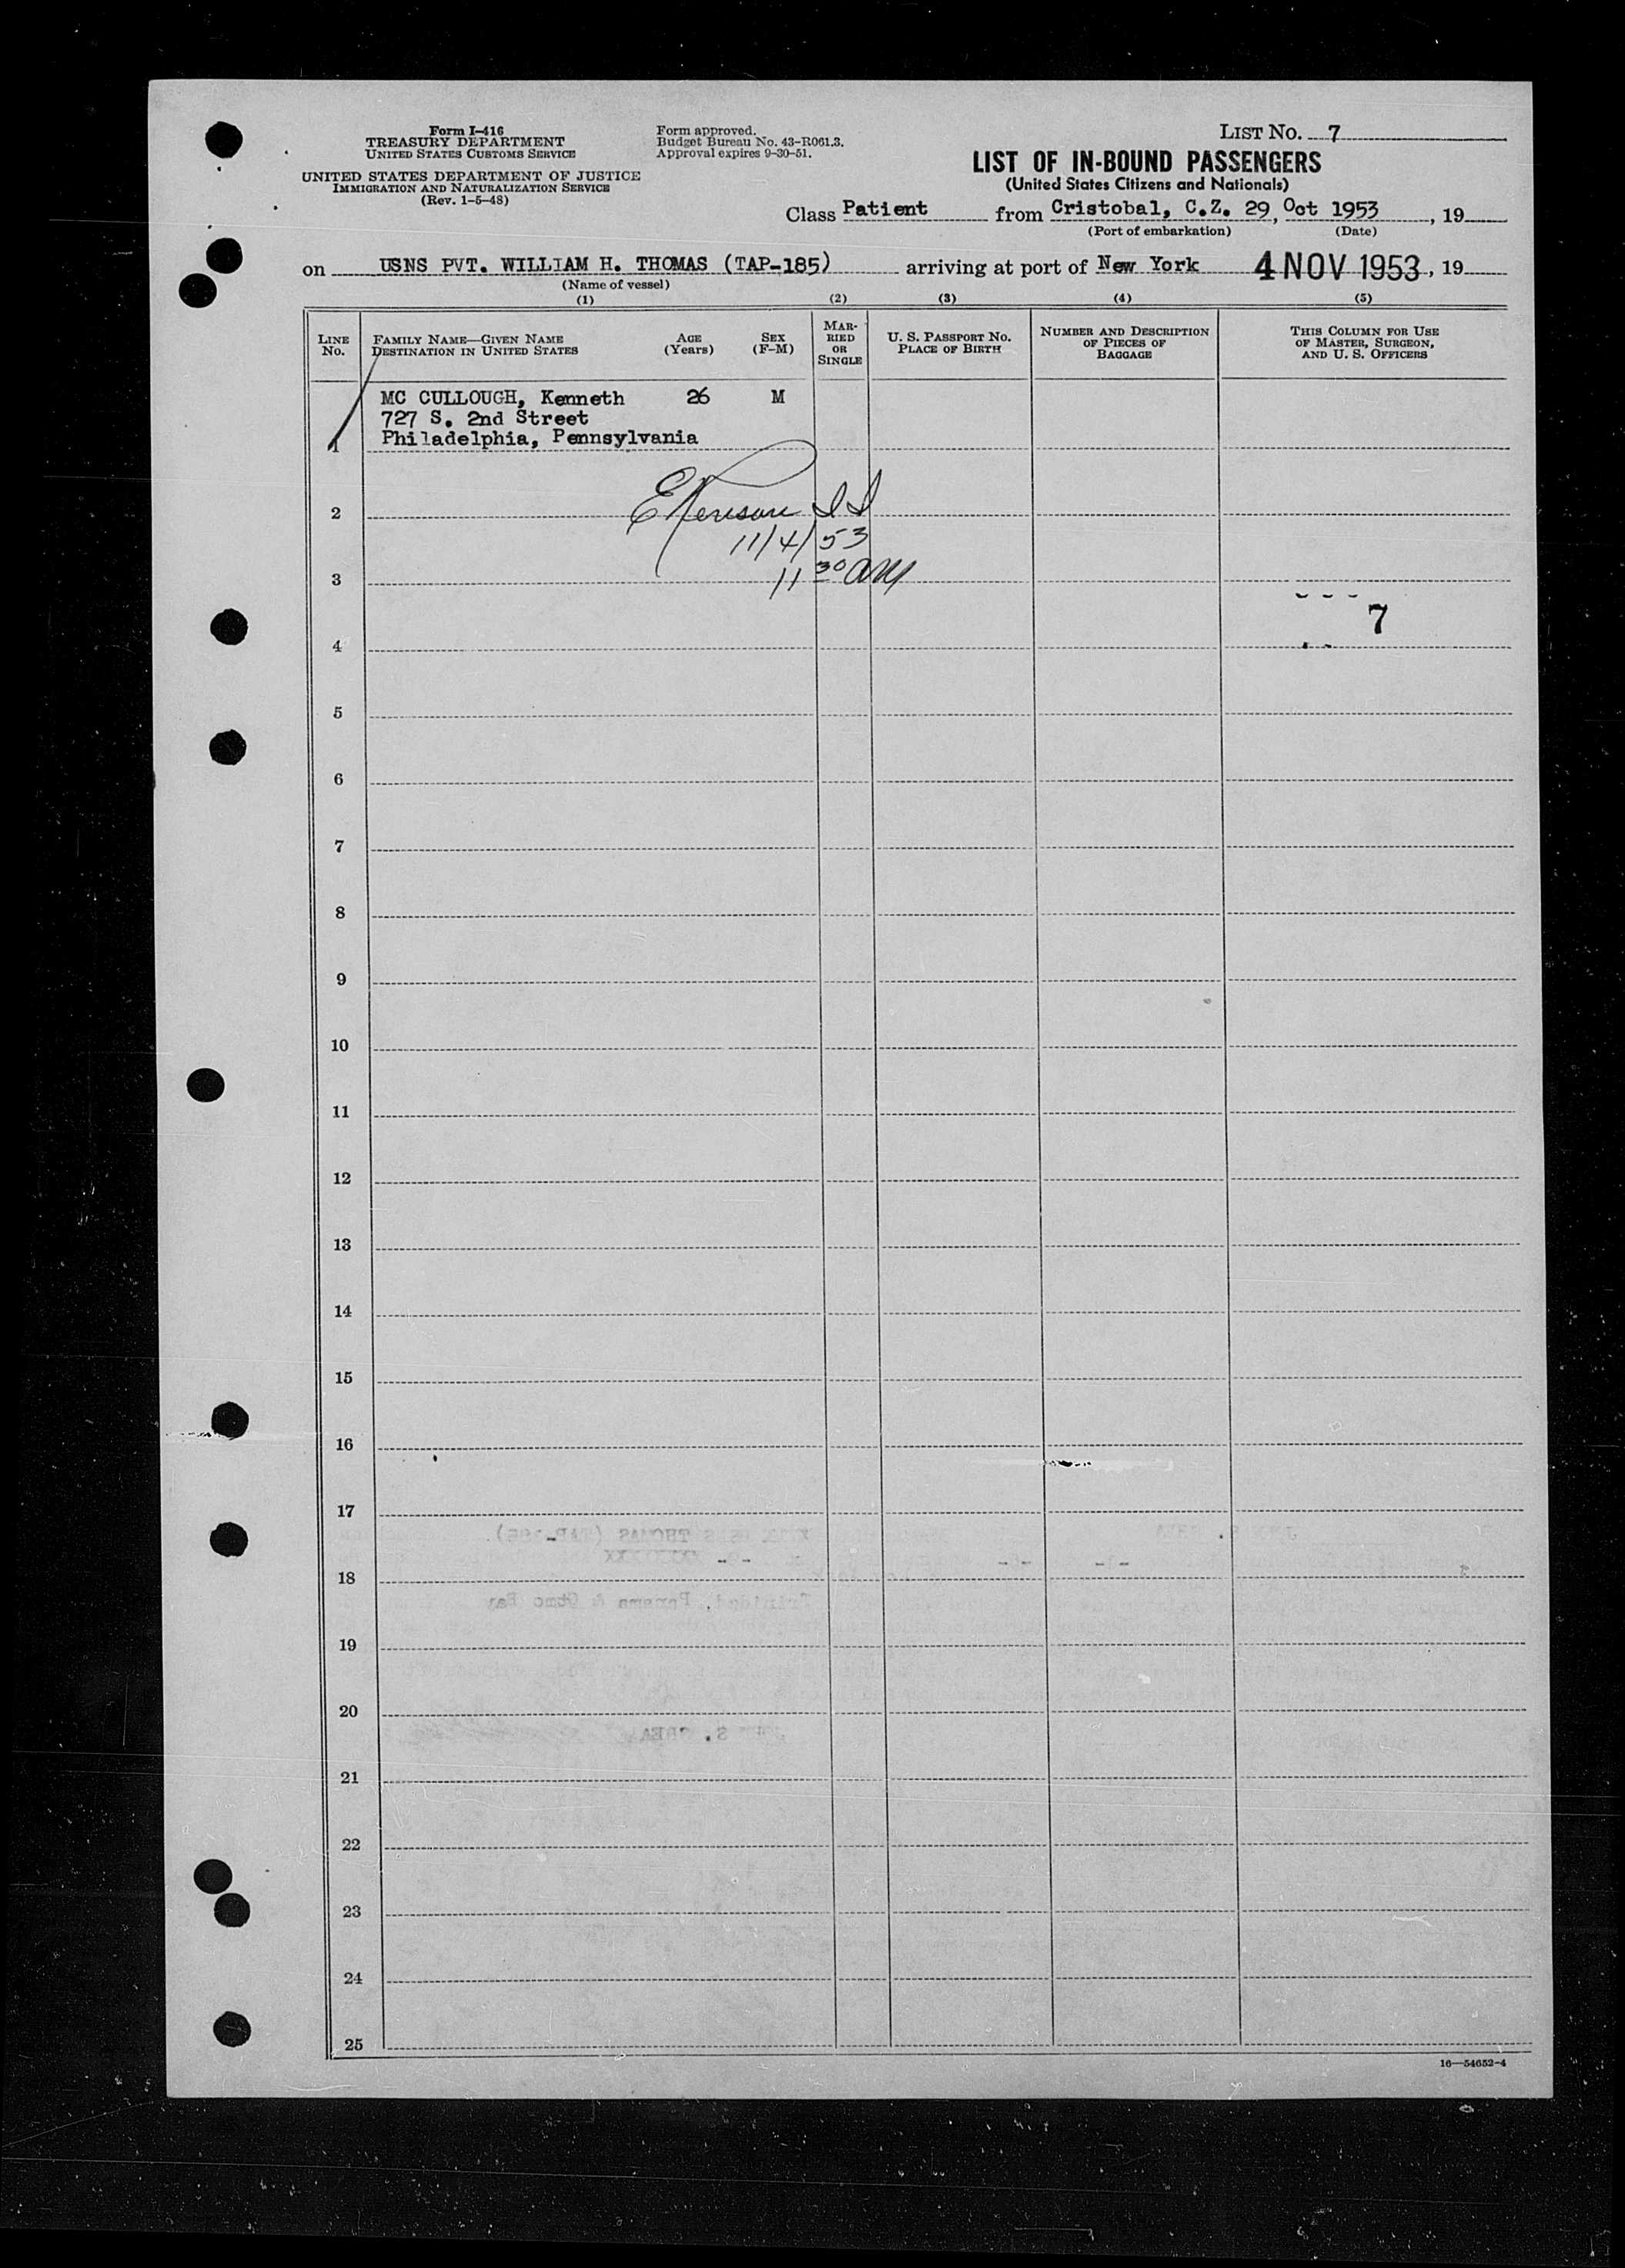 Form I-416
TREASURY DEPARTMENT
UNITED STATES CUSTOMS SERVICE
UNITED STATES DEPARTMENT OF JUSTICE
IMMIGRATION AND NATURALIZATION SERVICE
(Rev. 1-5-48)
Form approved.
Budget Bureau No. 43-R061.3.
Approval expires 9-30-51.
LIST NO. 7
LIST OF IN-BOUND PASSENGERS
(United States Citizens and Nationals)
Class Patient from Cristobal, C.Z. 29, Oct 1953, 19
(Port of embarkation) (Date)
on USNS PVT. WILLIAM H. THOMAS (TAP-185) arriving at port of New York 4 NOV 1953, 19
(Name of vessel)
(1) (2) (3) (4) (5)
LINE No.
FAMILY NAME—GIVEN NAME
DESTINATION IN UNITED STATES
AGE (Years)
SEX (F-M)
MARRIED OR SINGLE
U. S. PASSPORT NO.
PLACE OF BIRTH
NUMBER AND DESCRIPTION
OF PIECES OF
BAGGAGE
THIS COLUMN FOR USE
OF MASTER, SURGEON,
AND U. S. OFFICERS
MC CULLOUGH, Kenneth 26 M
727 S. 2nd Street
Philadelphia, Pennsylvania
1
2
11/4/53
3
11 30 AM
7
4
5
6
7
8
9
10
11
12
13
14
15
16
17
18
19
20
21
22
23
24
25
16—54652-4